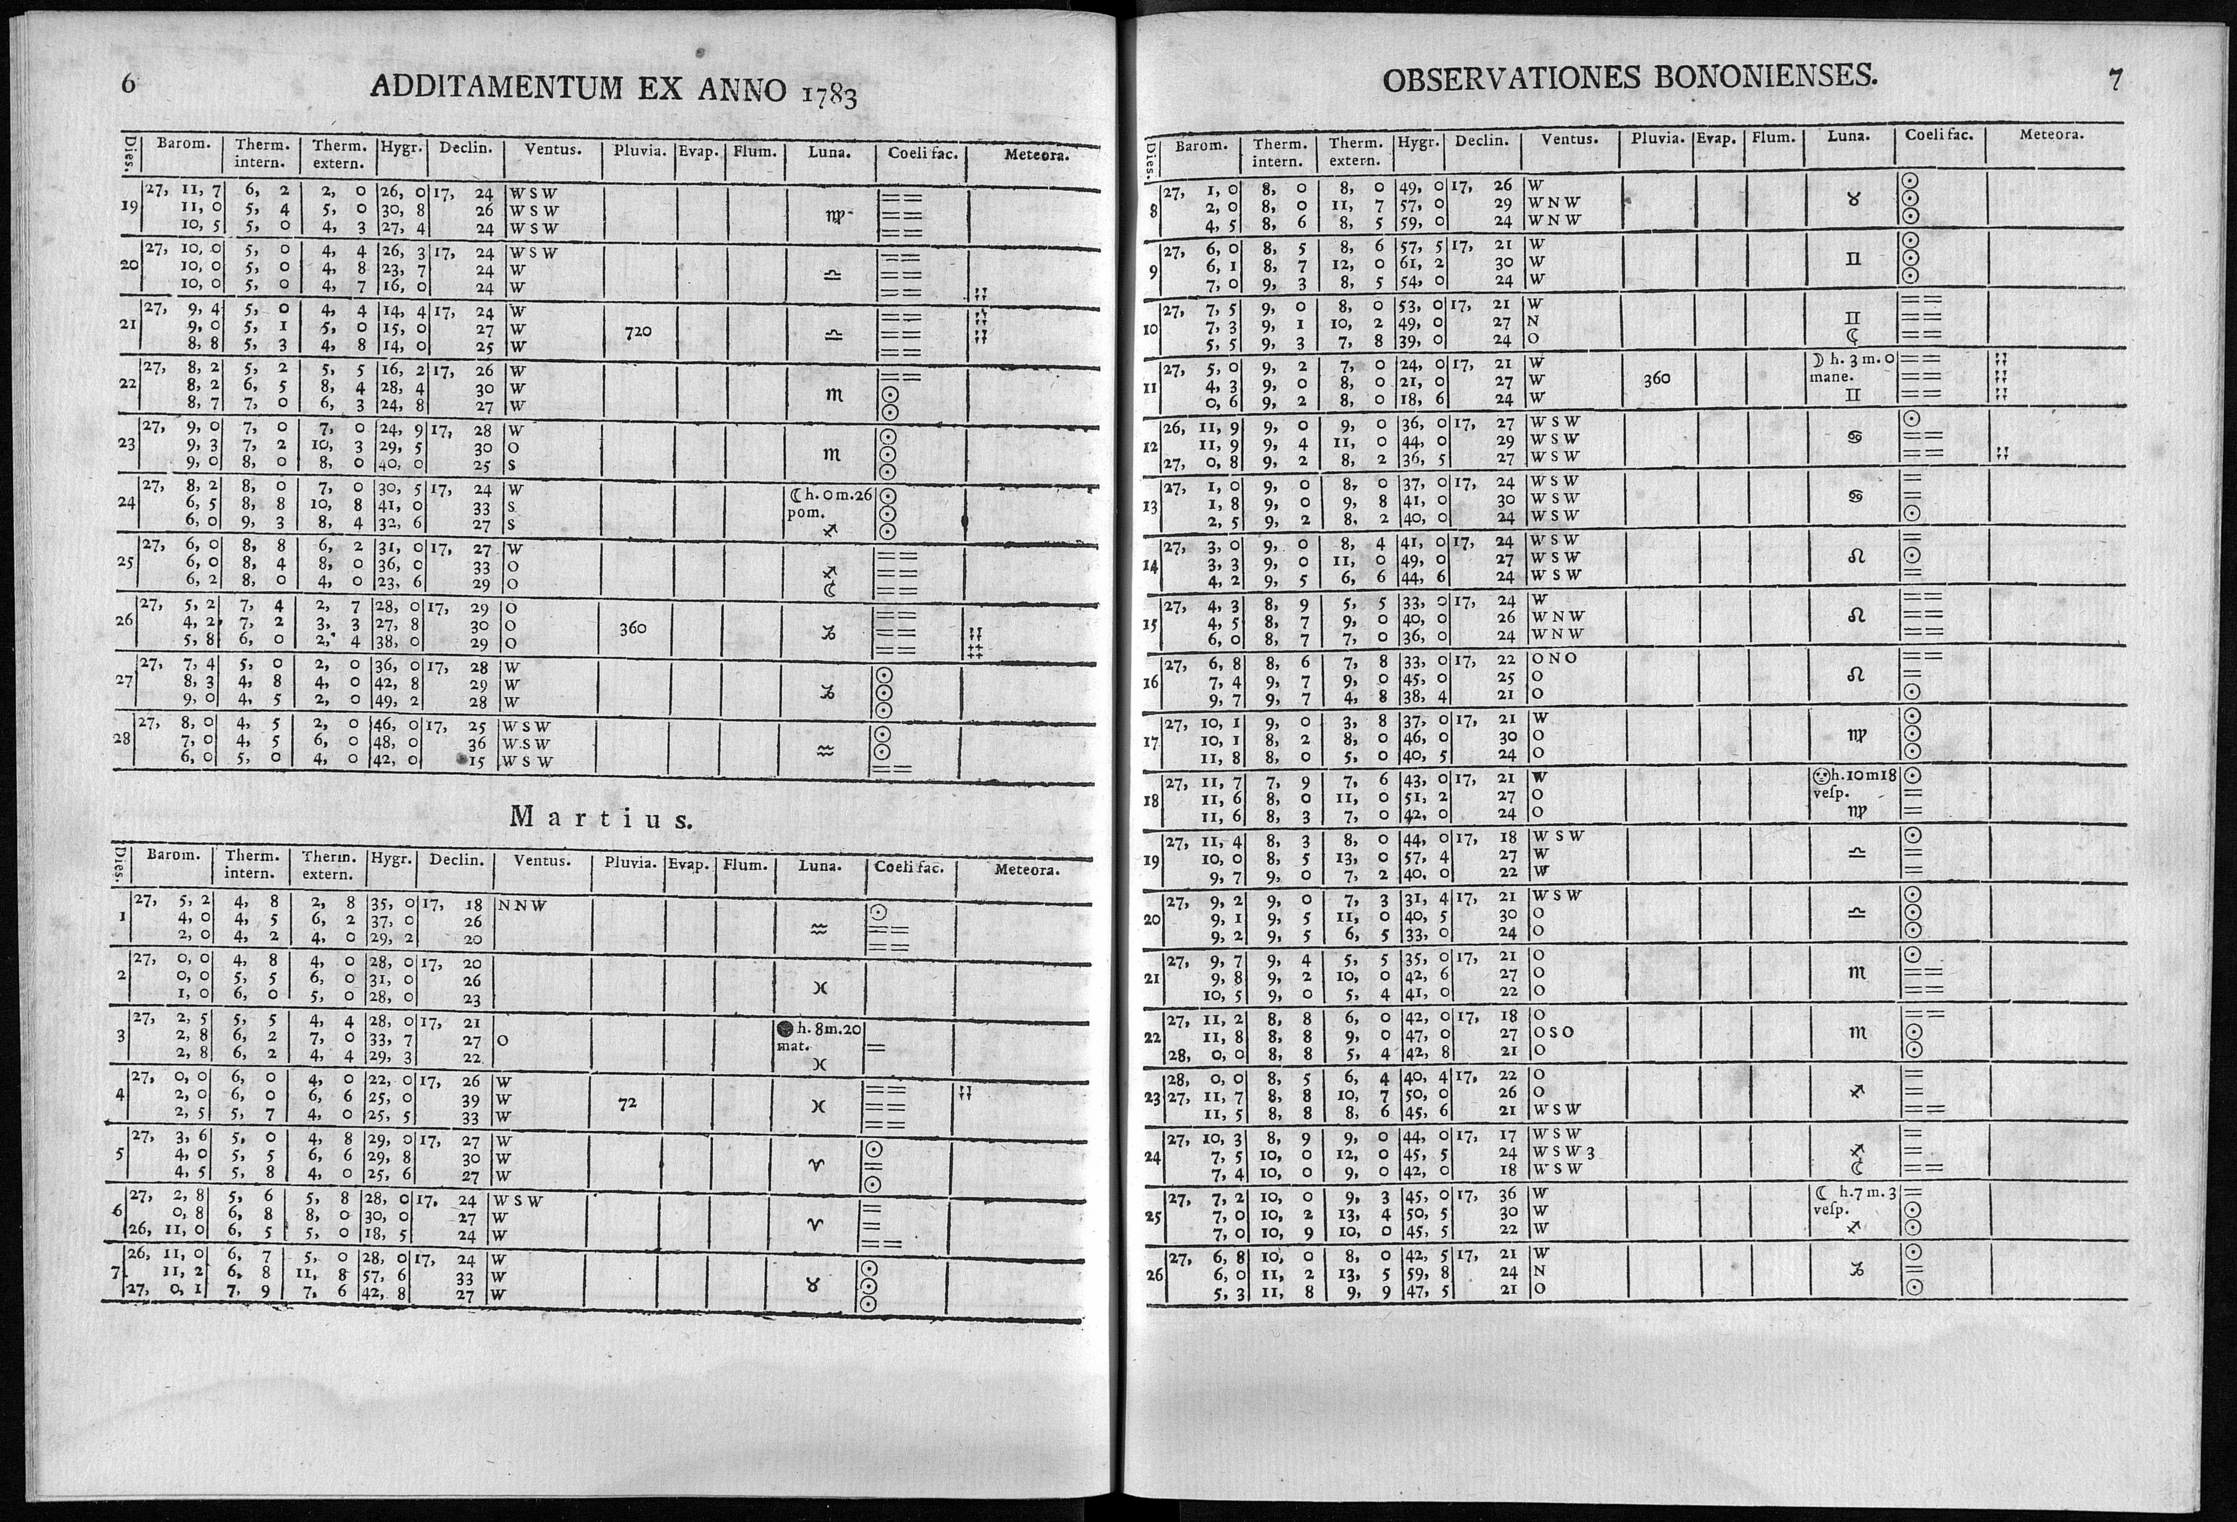 6 ADDITAMENTUM EX ANNO 1783
Dies. Barom. Therm. intern. Therm. extern. Hygr. Declin. Ventus. Pluvia. Evap. Flum. Luna. Coeli fac. Meteora.
27, 11, 7 6, 2 2, 0 26, 0 17, 24 W S W ==
19 11, 0 5, 4 5, 0 30, 8 26 W S W ♍ ==
10, 5 5, 0 4, 3 27, 4 24 W S W ==
27, 10, 0 5, 0 4, 4 26, 3 17, 24 W S W ==
20 10, 0 5, 0 4, 8 23, 7 24 W ♎ ==
10, 0 5, 0 4, 7 16, 0 24 W ==
27, 9, 4 5, 0 4, 4 14, 4 17, 24 W ==
21 9, 0 5, 1 5, 0 15, 0 27 W 720 ♎ ==
8, 8 5, 3 4, 8 14, 0 25 W ==
27, 8, 2 5, 2 5, 5 16, 2 17, 26 W ==
22 8, 2 6, 5 8, 4 28, 4 30 W ♏ ☉
8, 7 7, 0 6, 3 24, 8 27 W ☉
27, 9, 0 7, 0 7, 0 24, 9 17, 28 W ☉
23 9, 3 7, 2 10, 3 29, 5 30 O ♏ ☉
9, 0 8, 0 8, 0 40, 0 25 S ☉
27, 8, 2 8, 0 7, 0 30, 5 17, 24 W ☾ h. 0 m. 26 ☉
24 6, 5 8, 8 10, 8 41, 0 33 S pom. ☉
6, 0 9, 3 8, 4 32, 6 27 S ♐ ☉
27, 6, 0 8, 8 6, 2 31, 0 17, 27 W ==
25 6, 0 8, 4 8, 0 36, 0 33 O ♐ ==
6, 2 8, 0 4, 0 23, 6 29 O ☾ ==
27, 5, 2 7, 4 2, 7 28, 0 17, 29 O ==
26 4, 2 7, 2 3, 3 27, 8 30 O 360 ♑ ==
5, 8 6, 0 2, 4 38, 0 29 O ==
27, 7, 4 5, 0 2, 0 36, 0 17, 28 W ☉
27 8, 3 4, 8 4, 0 42, 8 29 W ♑ ☉
9, 0 4, 5 2, 0 49, 2 28 W ☉
27, 8, 0 4, 5 2, 0 46, 0 17, 25 W S W ☉
28 7, 0 4, 5 6, 0 48, 0 36 W S W ♒ ☉
6, 0 5, 0 4, 0 42, 0 15 W S W ==
Martius.
Dies. Barom. Therm. intern. Therm. extern. Hygr. Declin. Ventus. Pluvia. Evap. Flum. Luna. Coeli fac. Meteora.
27, 5, 2 4, 8 2, 8 35, 0 17, 18 N N W ☉
1 4, 0 4, 5 6, 2 37, 0 26 ♒ ==
2, 0 4, 2 4, 0 29, 2 20 ==
27, 0, 0 4, 8 4, 0 28, 0 17, 20
2 0, 0 5, 5 6, 0 31, 0 26 ♓
1, 0 6, 0 5, 0 28, 0 23
27, 2, 5 5, 5 4, 4 28, 0 17, 21 ● h. 8 m. 20
3 2, 8 6, 2 7, 0 33, 7 27 O mat. =
2, 8 6, 2 4, 4 29, 3 22 ♓
27, 0, 0 6, 0 4, 0 22, 0 17, 26 W ==
4 2, 0 6, 0 6, 6 25, 0 39 W 72 ♓ ==
2, 5 5, 7 4, 0 25, 5 33 W ==
27, 3, 6 5, 0 4, 8 29, 0 17, 27 W ☉
5 4, 0 5, 5 6, 6 29, 8 30 W ♈ =
4, 5 5, 8 4, 0 25, 6 27 W ☉
27, 2, 8 5, 6 5, 8 28, 0 17, 24 W S W =
6 0, 8 6, 8 8, 0 30, 0 27 W ♈ =
26, 11, 0 6, 5 5, 0 18, 5 24 W ==
26, 11, 0 6, 7 5, 0 28, 0 17, 24 W ☉
7 11, 2 6, 8 11, 8 57, 6 33 W ♉ ☉
27, 0, 1 7, 9 7, 6 42, 8 27 W ☉
OBSERVATIONES BONONIENSES. 7
Dies. Barom. Therm. intern. Therm. extern. Hygr. Declin. Ventus. Pluvia. Evap. Flum. Luna. Coeli fac. Meteora.
27, 1, 0 8, 0 8, 0 49, 0 17, 26 W ☉
8 2, 0 8, 0 11, 7 57, 0 29 W N W ♉ ☉
4, 5 8, 6 8, 5 59, 0 24 W N W ☉
27, 6, 0 8, 5 8, 6 57, 5 17, 21 W ☉
9 6, 1 8, 7 12, 0 61, 2 30 W ♊ ☉
7, 0 9, 3 8, 5 54, 0 24 W ☉
27, 7, 5 9, 0 8, 0 53, 0 17, 21 W ==
10 7, 3 9, 1 10, 2 49, 0 27 N ♊ ==
5, 5 9, 3 7, 8 39, 0 24 O ☾ ==
27, 5, 0 9, 2 7, 0 24, 0 17, 21 W ☽ h. 3 m. 0 ==
11 4, 3 9, 0 8, 0 21, 0 27 W 360 mane. ==
0, 6 9, 2 8, 0 18, 6 24 W ♊ ==
26, 11, 9 9, 0 9, 0 36, 0 17, 27 W S W ☉
12 11, 9 9, 4 11, 0 44, 0 29 W S W ♋ ==
27, 0, 8 9, 2 8, 2 36, 5 27 W S W ==
27, 1, 0 9, 0 8, 0 37, 0 17, 24 W S W =
13 1, 8 9, 0 9, 8 41, 0 30 W S W ♋ =
2, 5 9, 2 8, 2 40, 0 24 W S W ☉
27, 3, 0 9, 0 8, 4 41, 0 17, 24 W S W =
14 3, 3 9, 0 11, 0 49, 0 27 W S W ♌ ☉
4, 2 9, 5 6, 6 44, 6 24 W S W =
27, 4, 3 8, 9 5, 5 33, 0 17, 24 W ==
15 4, 5 8, 7 9, 0 40, 0 26 W N W ♌ ==
6, 0 8, 7 7, 0 36, 0 24 W N W ==
27, 6, 8 8, 6 7, 8 33, 0 17, 22 O N O ==
16 7, 4 9, 7 9, 0 45, 0 25 O ♌ =
9, 7 9, 7 4, 8 38, 4 21 O ☉
27, 10, 1 9, 0 3, 8 37, 0 17, 21 W ☉
17 10, 1 8, 2 8, 0 46, 0 30 O ♍ ☉
11, 8 8, 0 5, 0 40, 5 24 O ☉
27, 11, 7 7, 9 7, 6 43, 0 17, 21 W h. 10 m 18 ☉
18 11, 6 8, 0 11, 0 51, 2 27 O vesp. =
11, 6 8, 3 7, 0 42, 0 24 O ♍ =
27, 11, 4 8, 3 8, 0 44, 0 17, 18 W S W ☉
19 10, 0 8, 5 13, 0 57, 4 27 W ♎ =
9, 7 9, 0 7, 2 40, 0 22 W =
27, 9, 2 9, 0 7, 3 31, 4 17, 21 W S W ☉
20 9, 1 9, 5 11, 0 40, 5 30 O ♎ ☉
9, 2 9, 5 6, 5 33, 0 24 O ☉
27, 9, 7 9, 4 5, 5 35, 0 17, 21 O ☉
21 9, 8 9, 2 10, 0 42, 6 27 O ♏ ==
10, 5 9, 0 5, 4 41, 0 22 O ==
27, 11, 2 8, 8 6, 0 42, 0 17, 18 O ==
22 11, 8 8, 8 9, 0 47, 0 27 O S O ♏ ☉
28, 0, 0 8, 8 5, 4 42, 8 21 O ☉
28, 0, 0 8, 5 6, 4 40, 4 17, 22 O =
23 27, 11, 7 8, 8 10, 7 50, 0 26 O ♐ =
11, 5 8, 8 8, 6 45, 6 21 W S W ==
27, 10, 3 8, 9 9, 0 44, 0 17, 17 W S W =
24 7, 5 10, 0 12, 0 45, 5 24 W S W 3 ♐ =
7, 4 10, 0 9, 0 42, 0 18 W S W ☾ ==
27, 7, 2 10, 0 9, 3 45, 0 17, 36 W ☾ h. 7 m. 3 =
25 7, 0 10, 2 13, 4 50, 5 30 W vesp. ☉
7, 0 10, 9 10, 0 45, 5 22 W ♐ ☉
27, 6, 8 10, 0 8, 0 42, 5 17, 21 W ☉
26 6, 0 11, 2 13, 5 59, 8 24 N ♑ =
5, 3 11, 8 9, 9 47, 5 21 O ☉